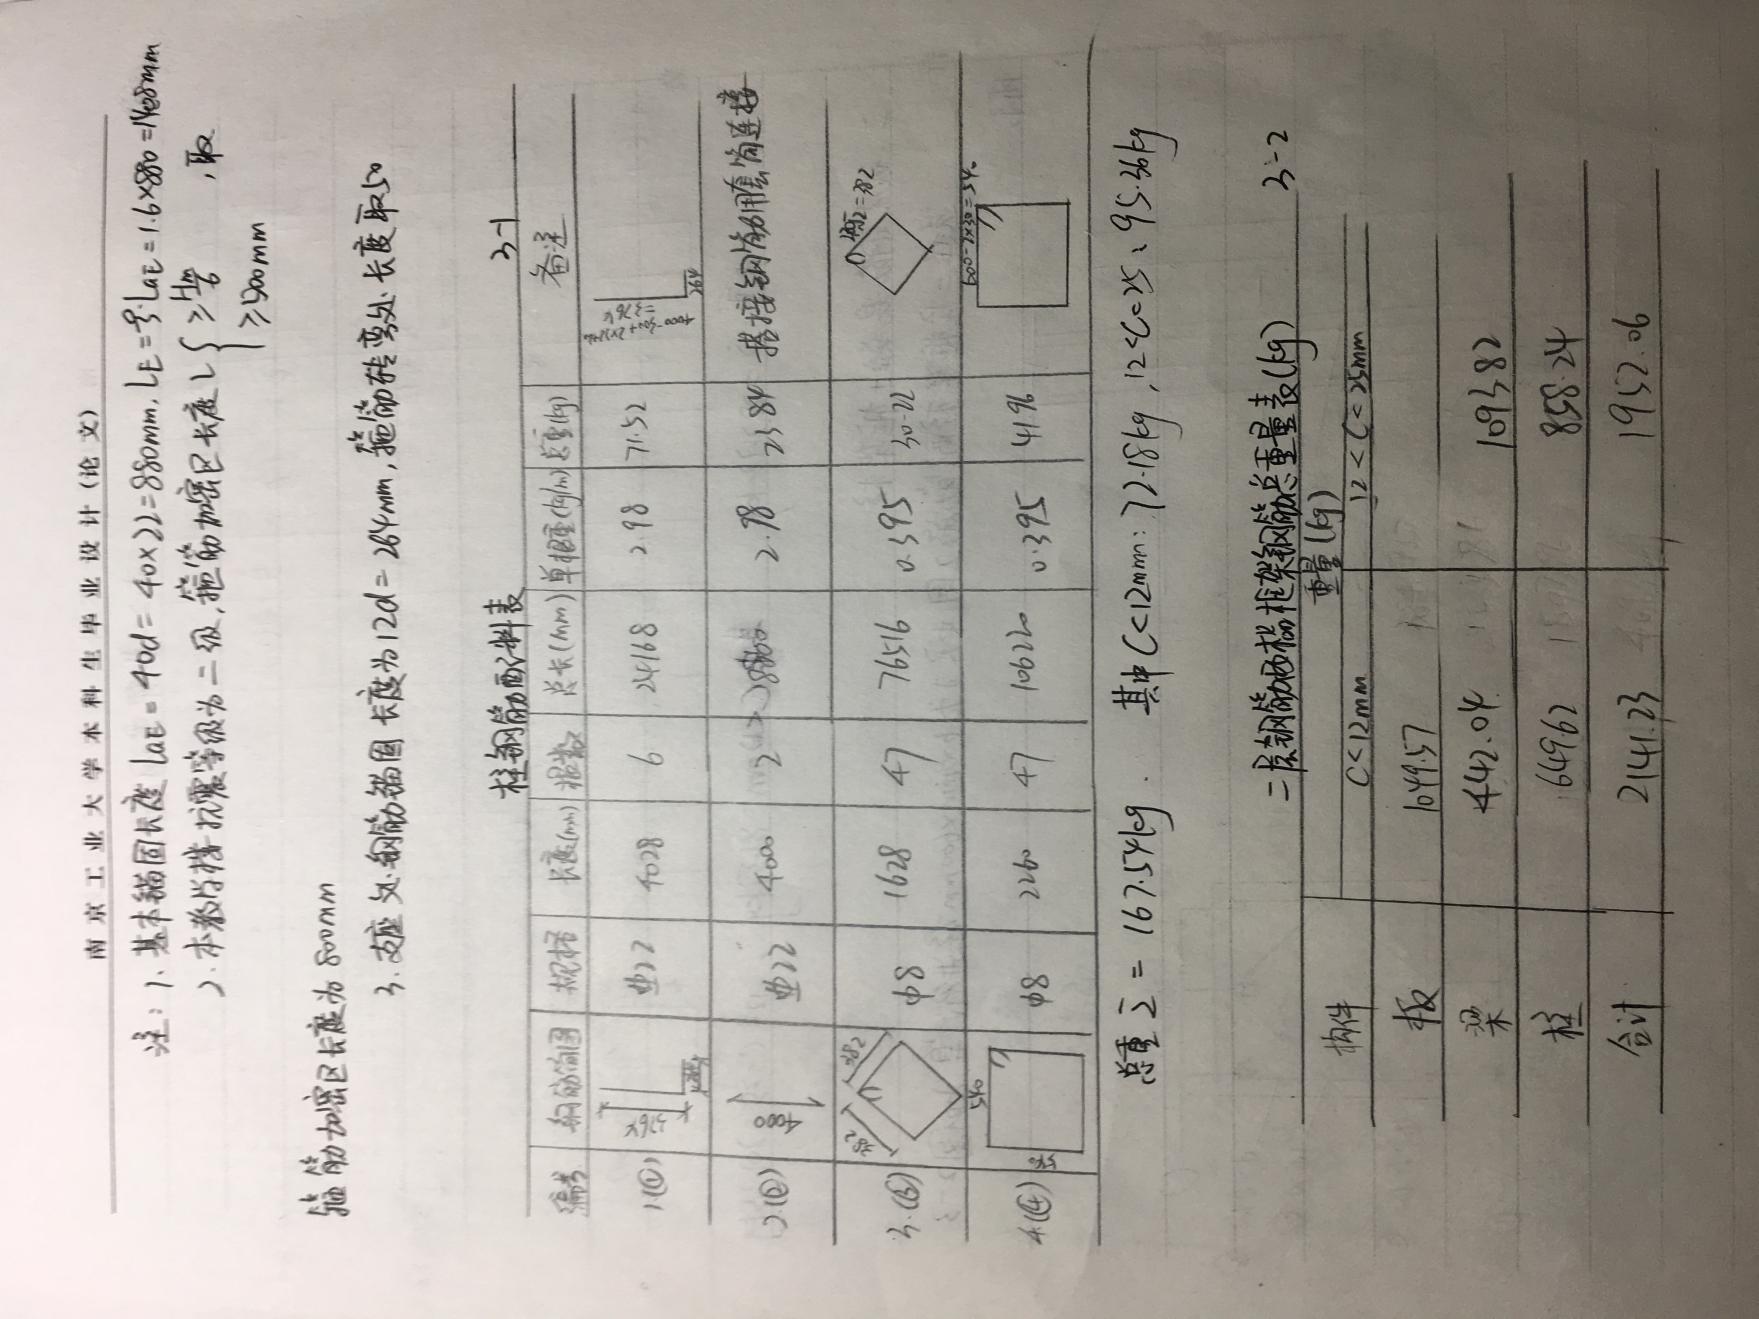 南京工业大学本科生毕业设计（论文）
注：1、基本锚固长度 laE = 40d = 40×22=880mm, lE = ζ·laE = 1.6×880=1408mm
2、本教学楼抗震等级为二级，箍筋加密区长度 L { ≥ Hn/6
≥500mm ，取
箍筋加密区长度为 800mm
3、支座处钢筋锚固长度为12d = 264mm，箍筋转弯处长度取50
柱钢筋配料表 3-1
编号 钢筋简图 规格 长度(mm) 根数 总长(mm) 单根重(kg/m) 总重(kg) 备注
1.(①) 3764 264 22 4028 6 24168 2.98 71.52 =3764 264
2.(②) 4000 22 4000 2 2.98 23.84 搭接钢筋用套筒连接
3.(⑤) 382 382 φ8 1628 47 76516 0.395 30.22 =382
4.(④) 540 φ8 2260 47 106220 0.395 41.96 600-2×30=54
总重Σ = 167.54kg. 其中C<12mm: 72.18kg, 12<C<25: 95.36kg
二层钢筋 框架钢筋总重量表(kg) 3-2
构件 重量(kg)
C<12mm 12<C<25mm
板 1049.57
梁 442.04 1093.82
柱 649.62 858.24
合计 2141.23 1952.06